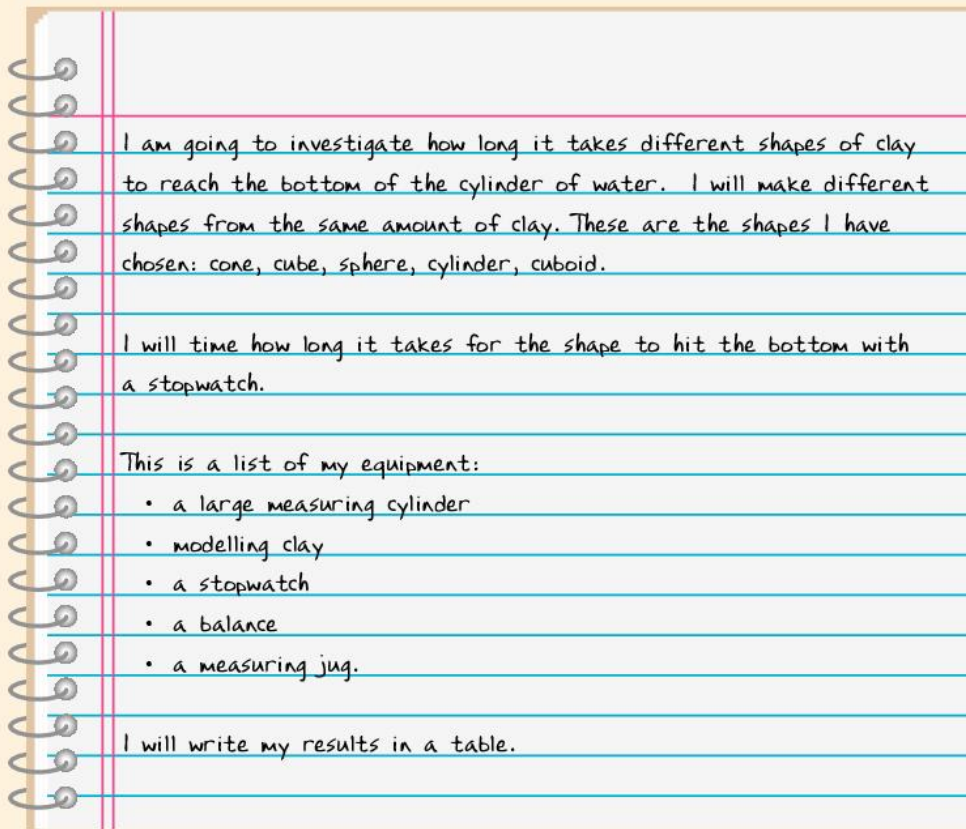 I am going to investigate how long it takes different shapes of clay
to reach the bottom of the cylinder of water. I will make different
shapes from the same amount of clay. These are the shapes I have
chosen: cone, cube, sphere, cylinder, cuboid.
I will time how long it takes for the shape to hit the bottom with
a stopwatch.
This is a list of my equipment:
• a large measuring cylinder
• modelling clay
• a stopwatch
• a balance
• a measuring jug.
I will write my results in a table.